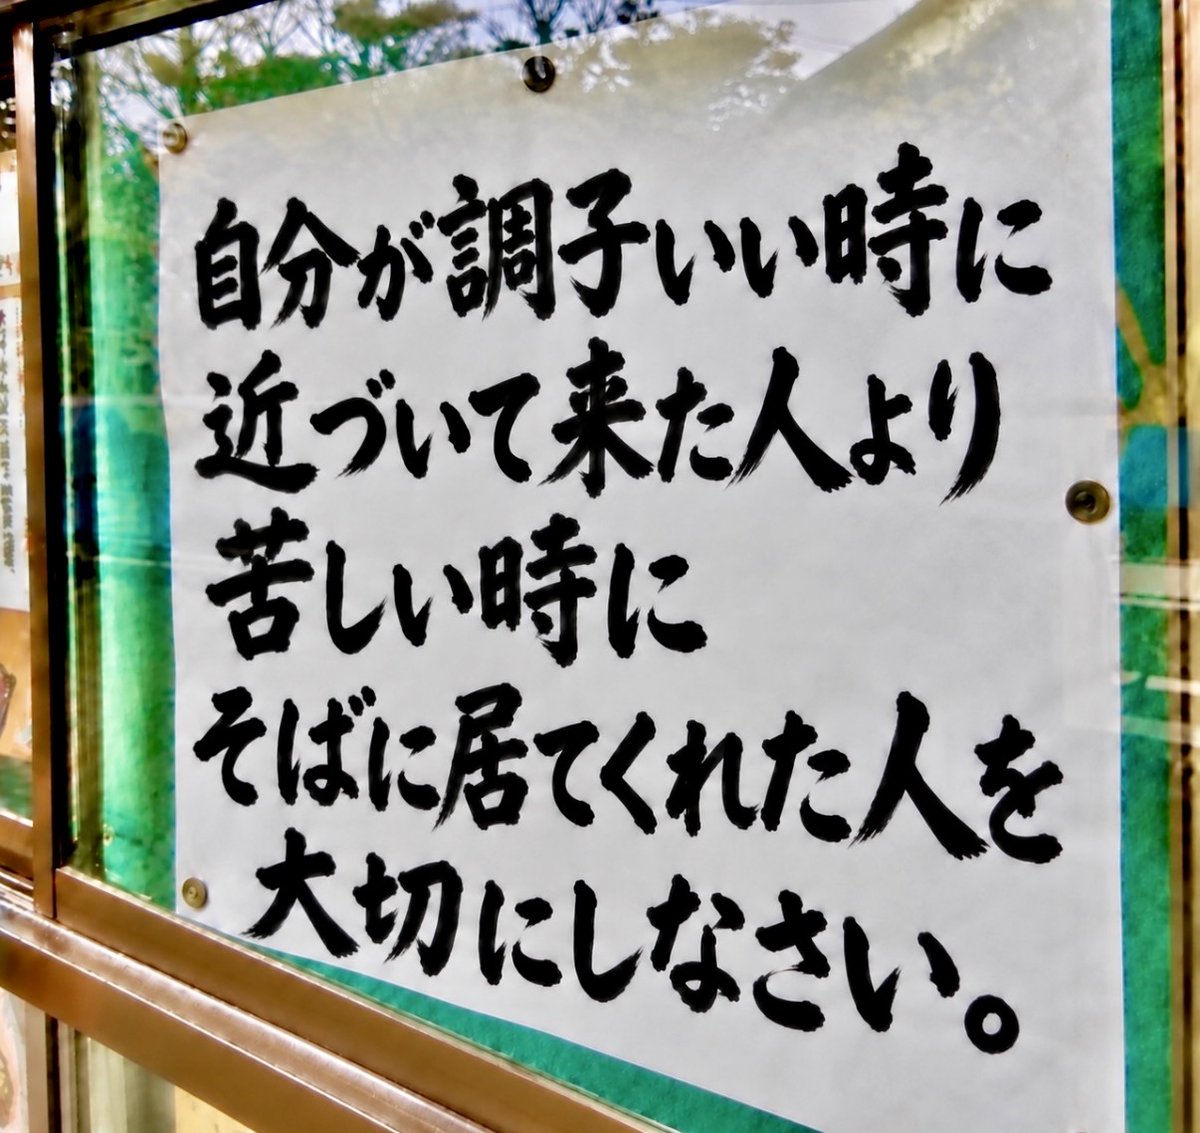 自分が調子いい時に
近づいて来た人より
苦しい時に
そばに居てくれた人を
大切にしなさい。